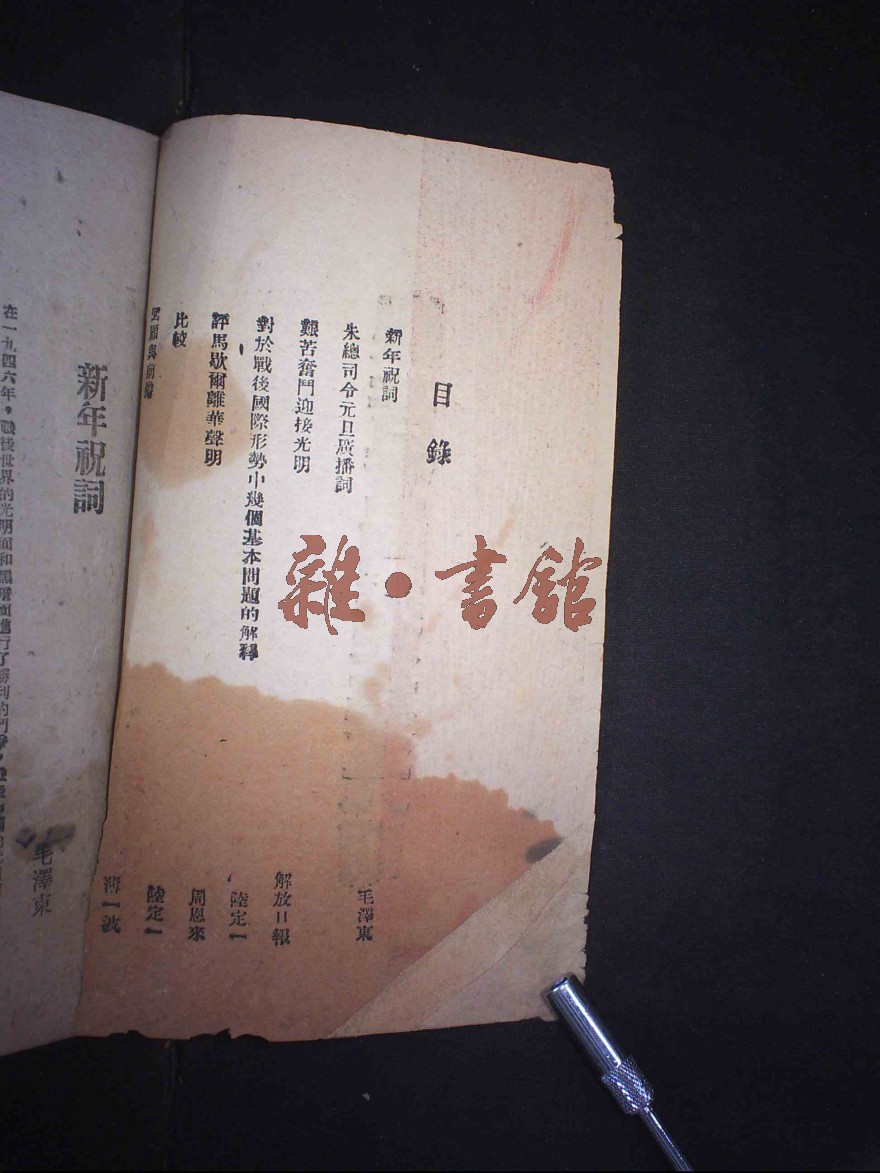 目錄
新年祝詞 毛澤東
朱總司令元旦廣播詞
艱苦奮鬥迎接光明 解放日報
對於戰後國際形勢中幾個基本問題的解釋 陸定一
評馬歇爾離華聲明 周恩來
比較 陸定一
薄一波
雜·書館
新年祝詞
毛澤東
在一九四六年，戰後世界的光明面和黑暗面進行了勝利的鬥爭，